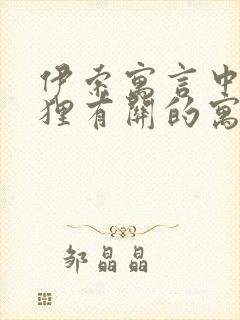 伊索寓言中
狸有關的寓
邹晶晶